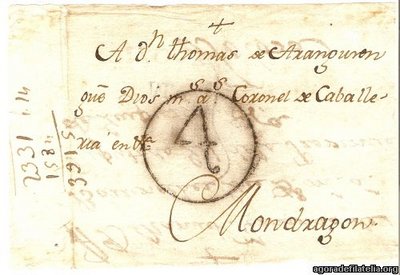 +
A dn thomas de Aranguren
gue Dios ms as Coronel de Caballe-
ria en
4
Mondragon
2331
1584
3915
agoradefilatelia.org